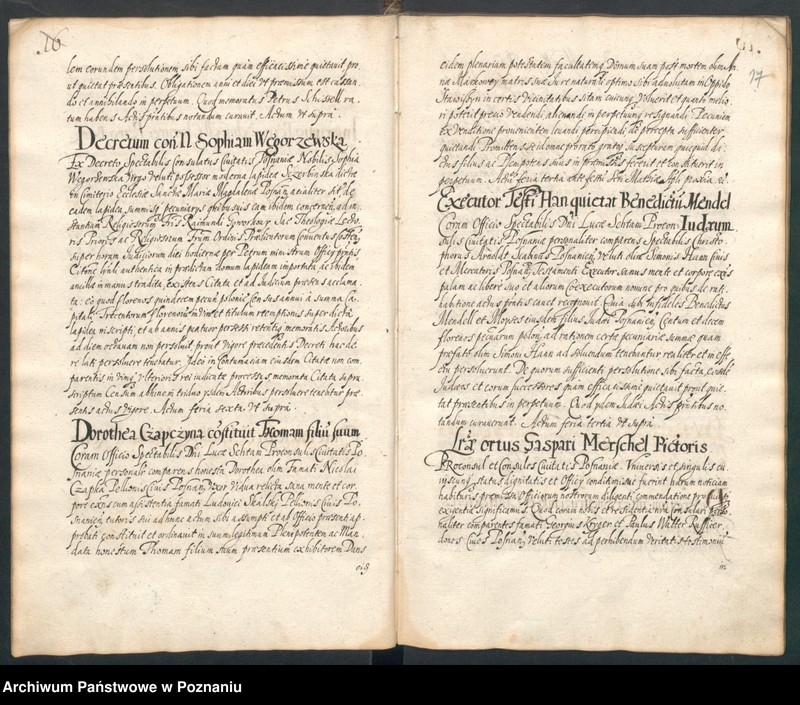 16
lem eorundem persolutionem sibi factam quam efficacissime quietavit pro
ut quietat praesentibus. Obligationem anni et diei ut praemissum est cassan
do et annihilando in perpetuum. Quod memoratus Petrus Schussell ra
tum habens Actis pntibus notandum curavit. Actum ut supra.
Decretum con N. Sophiam Węgorzewska
Ex Decreto Spectabilis Consulatus Civitatis Posnaniae Nobilis Sophia
Węgorzewska Virgo veluti possessor moderna lapideae Szczerbinska dictae
in Cimiterio Ecclesiae Sanctae Mariae Magdalenae Posnan
eadem lapidea summis et pecuniarys
stantiam Religiosorum Fris Raimundi Jaworskowy Sac Theologiae Lecto
ris Prioris ac Religiosorum Frum Ordinis Praedicatorum Conventus
super horam Judiciorum diei hodiernae per Petrum ministrum Officy pntis
authentica in praedictam domum lapideam importata ac ibidem
ancillae in manus tradita, existens Citata et ad Judicium praesens acclama
ta: eo quod florenos quindecem pecun polonic Census annui a summa Ca
pitali Trecentorum florenorum titulum reemptionis super dicta
lapidea inscripti, et ab annis quatuor retentis memoratis Actoribus
ad diem octavam non persolvit prout vigore praecedentis Decreti hac de
re lati persolvere tenebatur. Ideo in Contumaciam eiusdem Citatae non com
parentis in vim ulterioris rei iudicatae processus, memorata Citata supra
scriptum Censum ab hinc in triduo ysdem Actoribus persolvere tenebitur prae
sentis actus vigore. Actum feria sexta ut supra.
Dorothea Czapczyna costituit Thomam filiu suum
Coram Officio Spectabilis Dni Lucae Schtam Proconsulis Civitatis Po
snaniae personalr comparens honesta Dorothea olim Famati Nicolai
Czapka Pellionis Civis Posnan Uxor Vidua relicta sana mente et cor
pore exns cum assistentia famati Ludovici Skalsky Pellionis Civis Po
snanien tutoris sui ad hunc actum sibi assumpti et ab Officio praesenti ap
probati constituit et ordinavit in suum legitimum Plenipotentem ac Man
datarium honestum Thomam filium suum praesentium exhibitorem Dans
eis
17
eidem plenariam potestatem facultatemq Domum suam post mortem olim An
na matris suae Jure naturali optimo sibi advolutam in Oppido
in certis vicinitatibus sitam cuicunq voluerit et quanto melio
ri poterit precio vendendi alienandi in perpetuum resignandi Pecuniam
ex venditione provenientem levandi percipiendi de percepta sufficienter
quietandi Promittens se id omne pro rato gratoq suscepturam quicquid di
ctus filius ac Plenipotens suus in praemissis fecerit et constituerit in
perpetuum. Actum feria tertia ante festu Sti Mathiae Apli proxia
Executor Testti Han quietat Benedictu Mendel
Coram Officio Spectabilis Dni Lucae Schtam Procon Iudaeum
sulis Civitatis Posnaniae personaliter comparens Spectabilis Christo
phorus Arnoldt Scabinus Posnanien veluti olim Simonis Hann Civis
et Mercatoris Posnan Testamenti Executor sanus mente et corpore exis
palam ac libere suo et aliorum Coexecutorum nomine pro quibus de rati
habitione actus pntis cavet recognovit. Quia sibi Infideles Benedictus
Mendell et Moyses eiusdem filius Judaei Posnanien, Centum et decem
florenos pecuniarum polon ad rationem certae pecuniariae summae quam
praefato olim Simoni Hann ad solvendum tenebantur realiter et in effe
ctu persolverunt. De quorum sufficienti persolutione sibi facta, eosde
Judaeos et eorum successores quam efficacissime quietavit prout quie
tat praesentibus in perpetuum. Quod ydem Judaei Actis pntibus no
tandum curaverunt. Actum feria tertia ut supra
Lra ortus Gaspari Merschel Pictoris
Proconsul et Consules Civitatis Posnaniae. Universis et singulis cu
iuscunq status dignitatis et Officy conditionisve fuerint harum noticiam
habituris praemissa Officiorum nostrorum diligenti commendatione pro cuiusq
exigentia significamus. Quod coram nobis et residentia nra consulari perso
naliter comparentes famati Georgius Kerger et Paulus Walter
dones Cives Posnan veluti testes ad perhibendum veritatis testimoniu
in
Archiwum Państwowe w Poznaniu